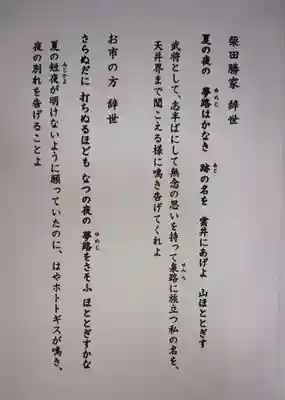 柴田勝家 辞世
夏の夜の 夢路はかなき 跡の名を 雲井にあげよ 山ほととぎす
武将として、志半ばにして無念の思いを持って泉路に旅立つ私の名を、
天井界まで聞こえる様に鳴き告げてくれよ
お市の方 辞世
さらぬだに 打ちぬるほども なつの夜の 夢路をさそふ ほととぎすかな
夏の短夜が明けないように願っていたのに、はやホトトギスが鳴き、
夜の別れを告げることよ